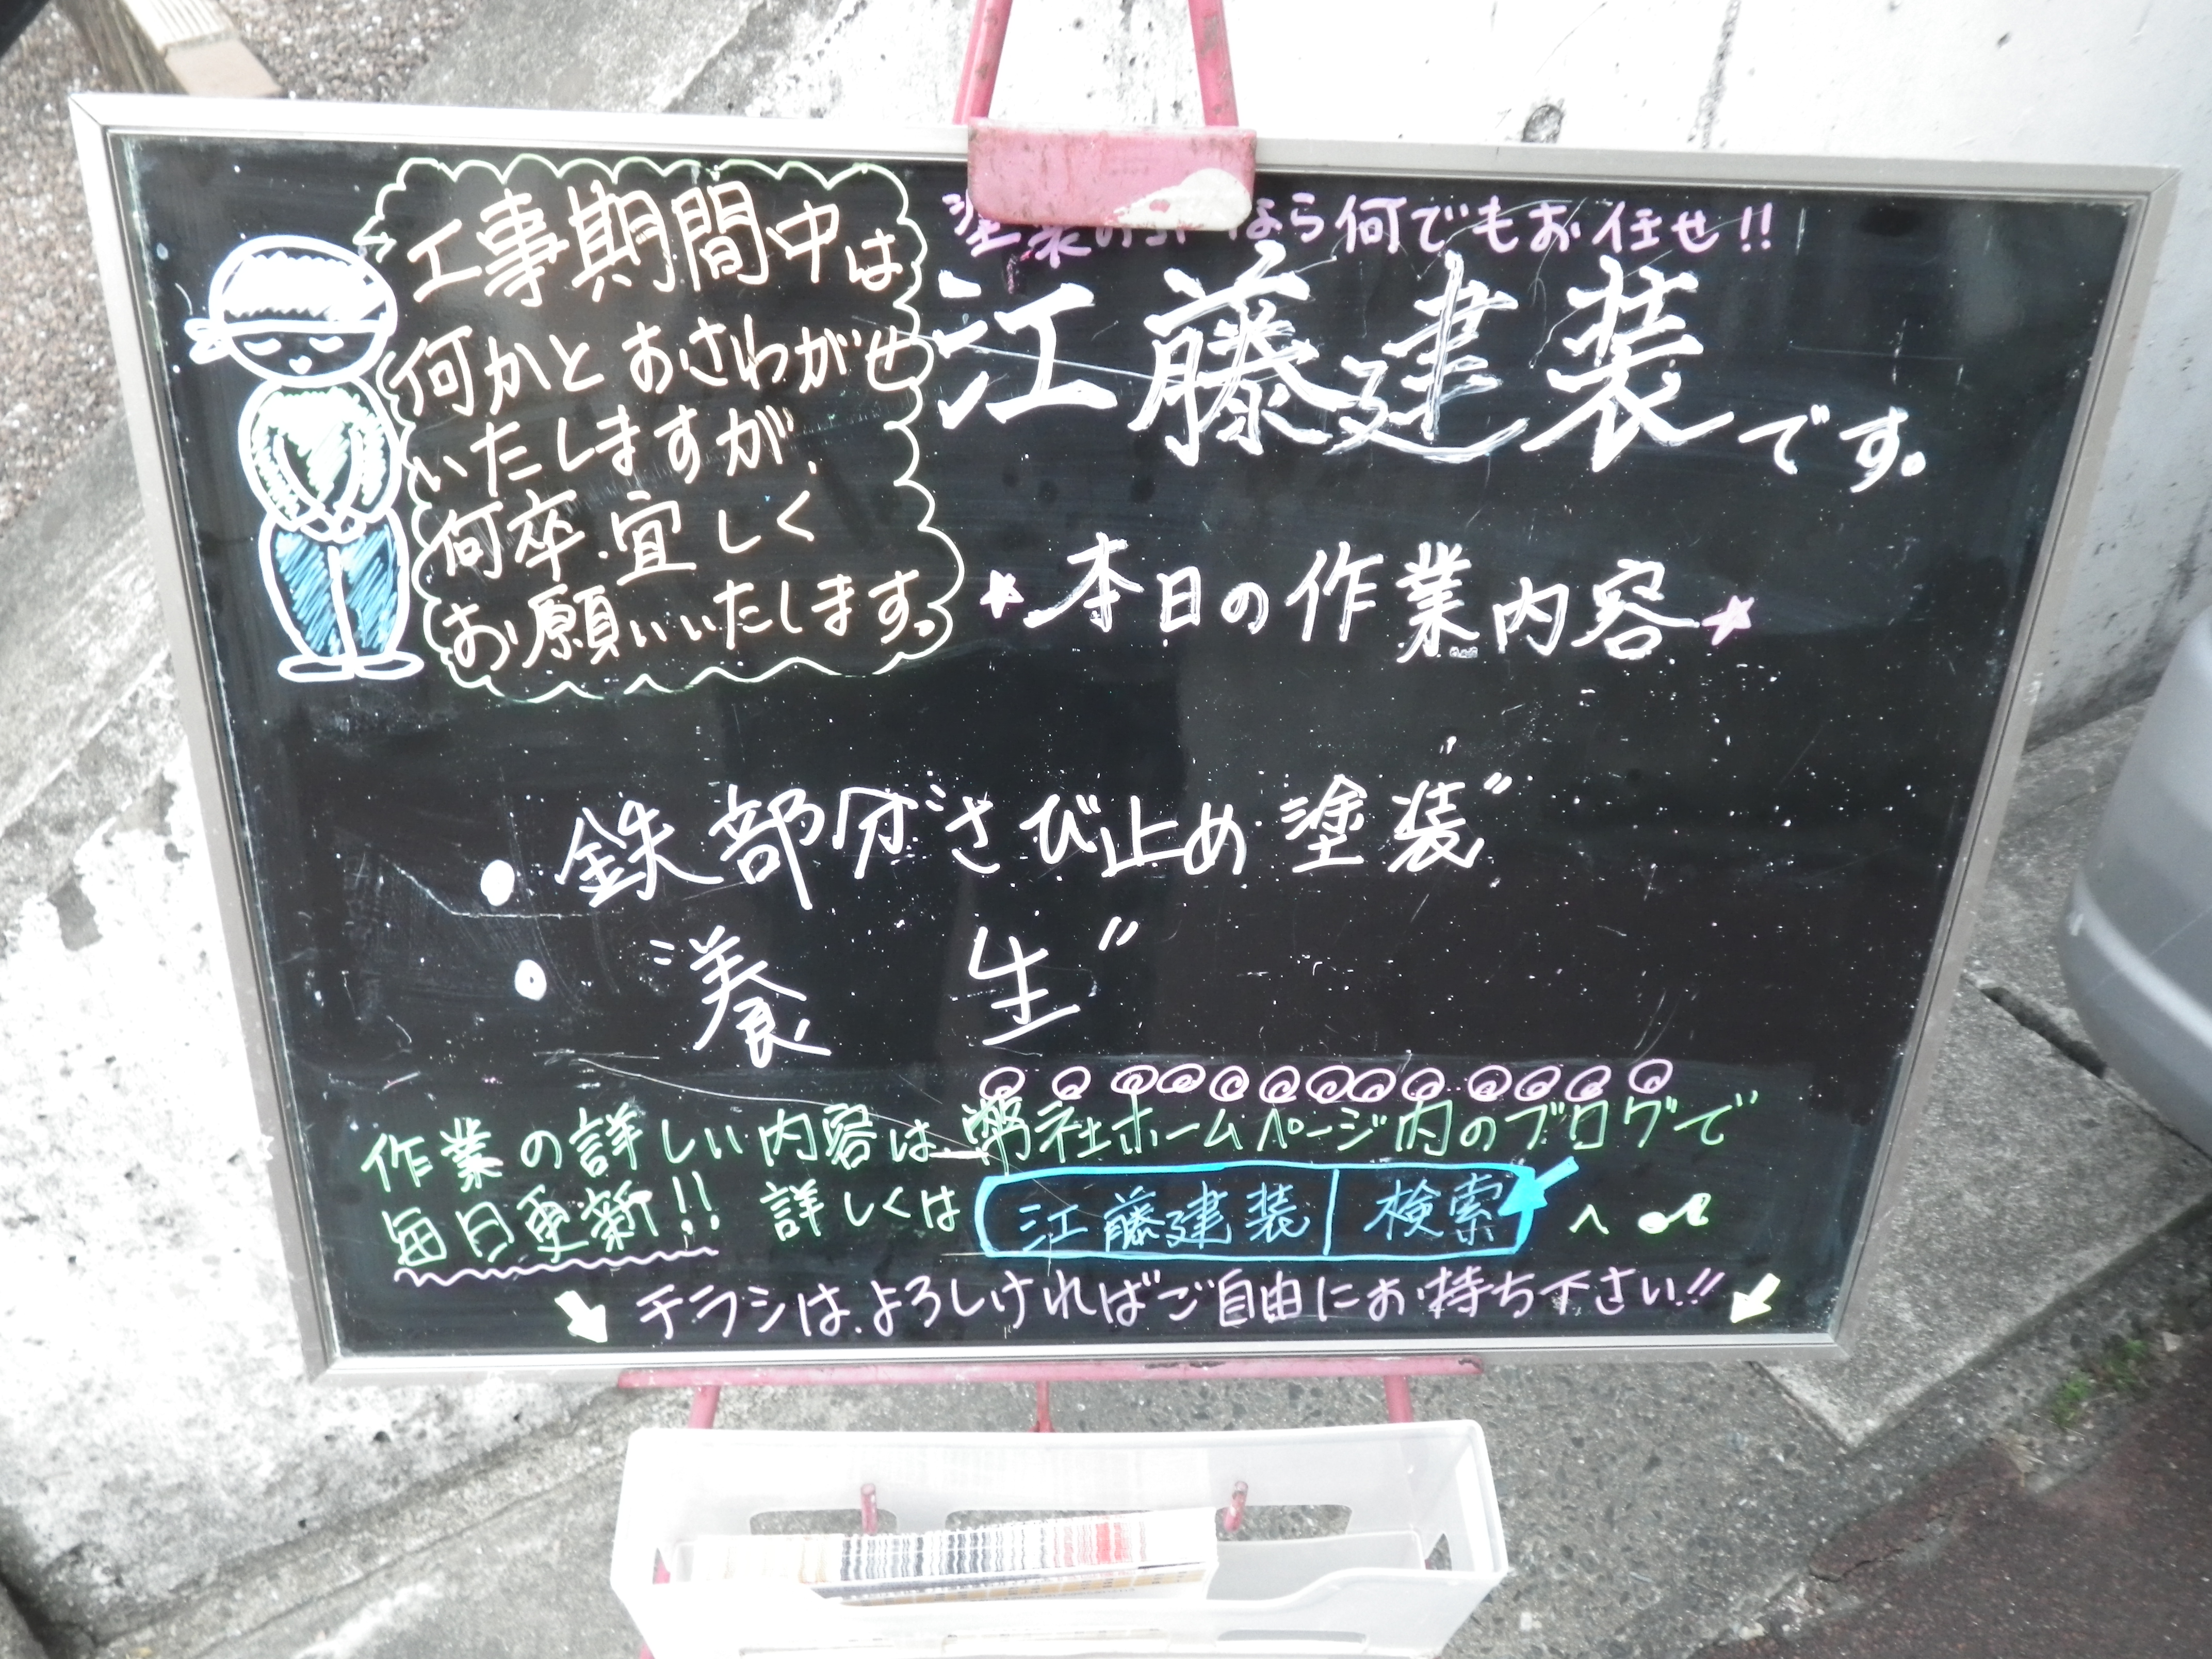 工事期間中は
何かとおさわがせ
いたしますが、
何卒宜しく
お願いいたします。
なら何でもお任せ!!
江藤建装です。
★本日の作業内容★
・鉄部分さび止め塗装〃
・養 生〃
作業の詳しい内容は弊社ホームページ内のブログで
毎日更新!! 詳しくは 江藤建装 検索 へ
チラシは、よろしければご自由にお持ち下さい!!